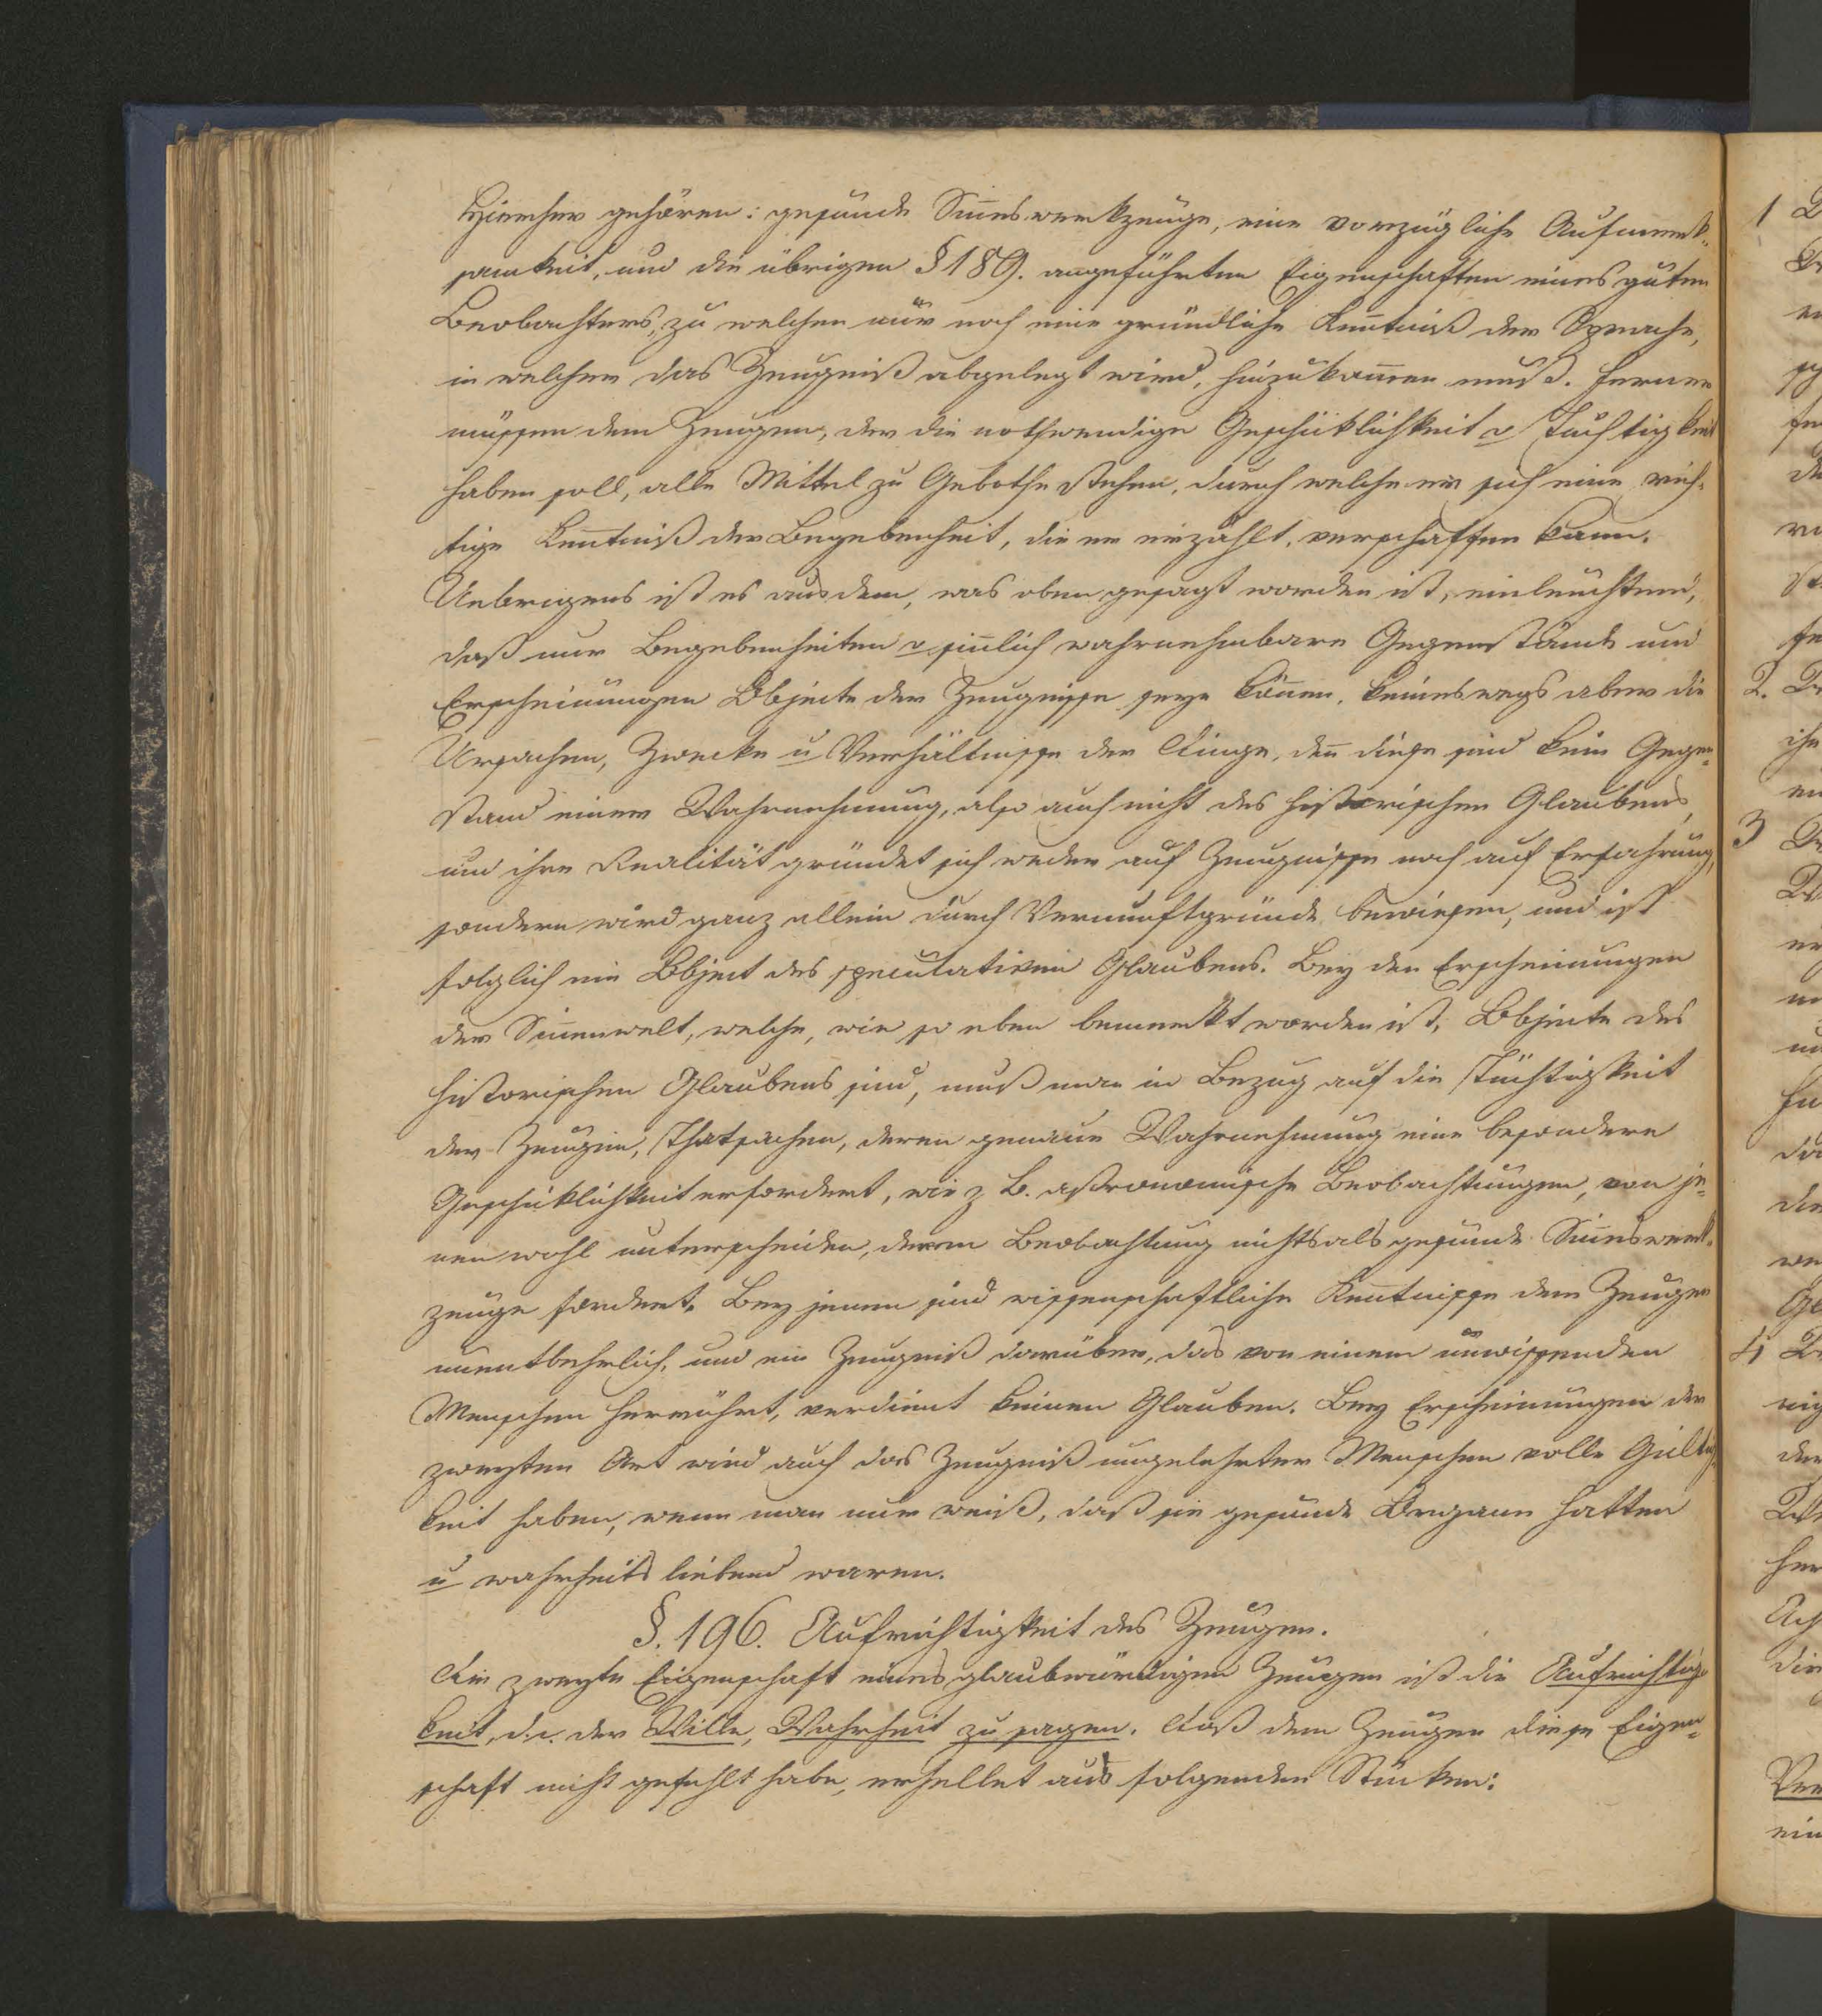 Hierher gehören: gesunde Sin̄eswerkzeuge, eine vorzügliche Aufmerk-
samkeit, und die übrigen § 189. angeführten Eigenschaften eines guten
Beobachters, zu welchen nur noch eine gründliche Ken̄tniß der Sprache,
in welcher das Zeugniß abgelegt wird, hinzukom̄en muß. Ferner
müssen dem Zeugen, der die nothwendige Geschicklichkeit u Tüchtigkeit
haben soll, alle Mittel zu Gebothe stehen, durch welche er sich eine rich-
tige Ken̄tniß der Begebenheit, die er erzählt, verschaffen kann.
Uebrigens ist es aus dem, was oben gesagt worden ist, einleuchtend,
daß nur Begebenheiten u sin̄lich wahrnehmbare Gegenstände und
Erscheinungen Objecte der Zeugnisse seyn kön̄en, keineswegs aber die
Ursachen, Zwecke u Verhältnisse der Dinge, den̄ diese sind kein Gegen-
stand einer Wahrnehmung, also auch nicht des historischen Glaubens,
und ihre Realität gründet sich weder auf Zeugnisse noch auf Erfahrung,
sondern wird ganz allein durch Vernunftgründe bewiesen, und ist
folglich ein Object des speculativen Glaubens. Bey den Erscheinungen
der Sin̄enwelt, welche, wie so eben bemerkt worden ist, Objecte des
historischen Glaubens sind, muß man in Bezug auf die Tüchtigkeit
der Zeugen, Thatsachen, deren genaue Wahrnehmung eine besondere
Geschicklichkeit erfordert, wie z B. astronomische Beobachtungen, von je-
nen wohl unterscheiden, deren Beobachtung nichts als gesunde Sin̄eswerk-
zeuge fordert. Bey jenen sind wissenschaftliche Ken̄tnisse dem Zeugen
unentbehrlich, und ein Zeugniß darüber, das von einem unwissenden
Menschen herrührt, verdient keinen Glauben. Bey Erscheinungen der
zweyten Art wird auch das Zeugniß ungelehrter Menschen volle Gültig-
keit haben, wenn man nur weiß, daß sie gesunde Organe hatten
u wahrheitsliebend waren.
§. 196. Aufrichtigkeit des Zeugen.
Die zweyte Eigenschaft eines glaubwürdigen Zeugen ist die Aufrichtig-
keit, d.i. der Wille, Wahrheit zu sagen. Daß dem Zeugen diese Eigen-
schaft nicht gefehlt habe, erhellet aus folgenden Stücken: